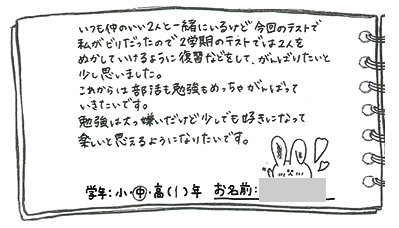 いつも仲のいい2人と一緒にいるけど今回のテストで
私がビリだったので2学期のテストでは2人を
ぬかしていけるように復習などをして、がんばりたいと
少し思いました。
これからは部活も勉強もめっちゃがんばって
いきたいです。
勉強は大っ嫌いだけど少しでも好きになって
楽しいと思えるようになりたいです。
学年:小・中・高(1)年 お名前: